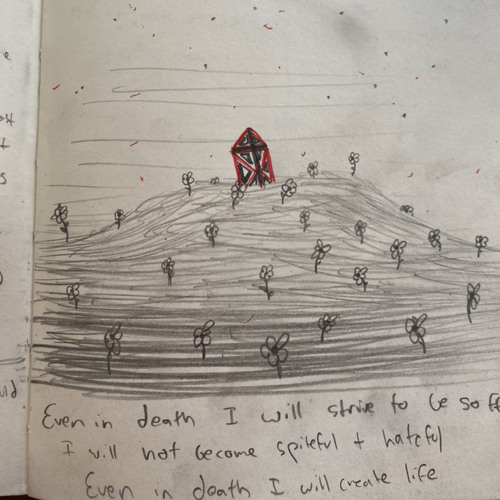 Even in death I will strive to be soft
I will not become spiteful + hateful
Even in death I will create life